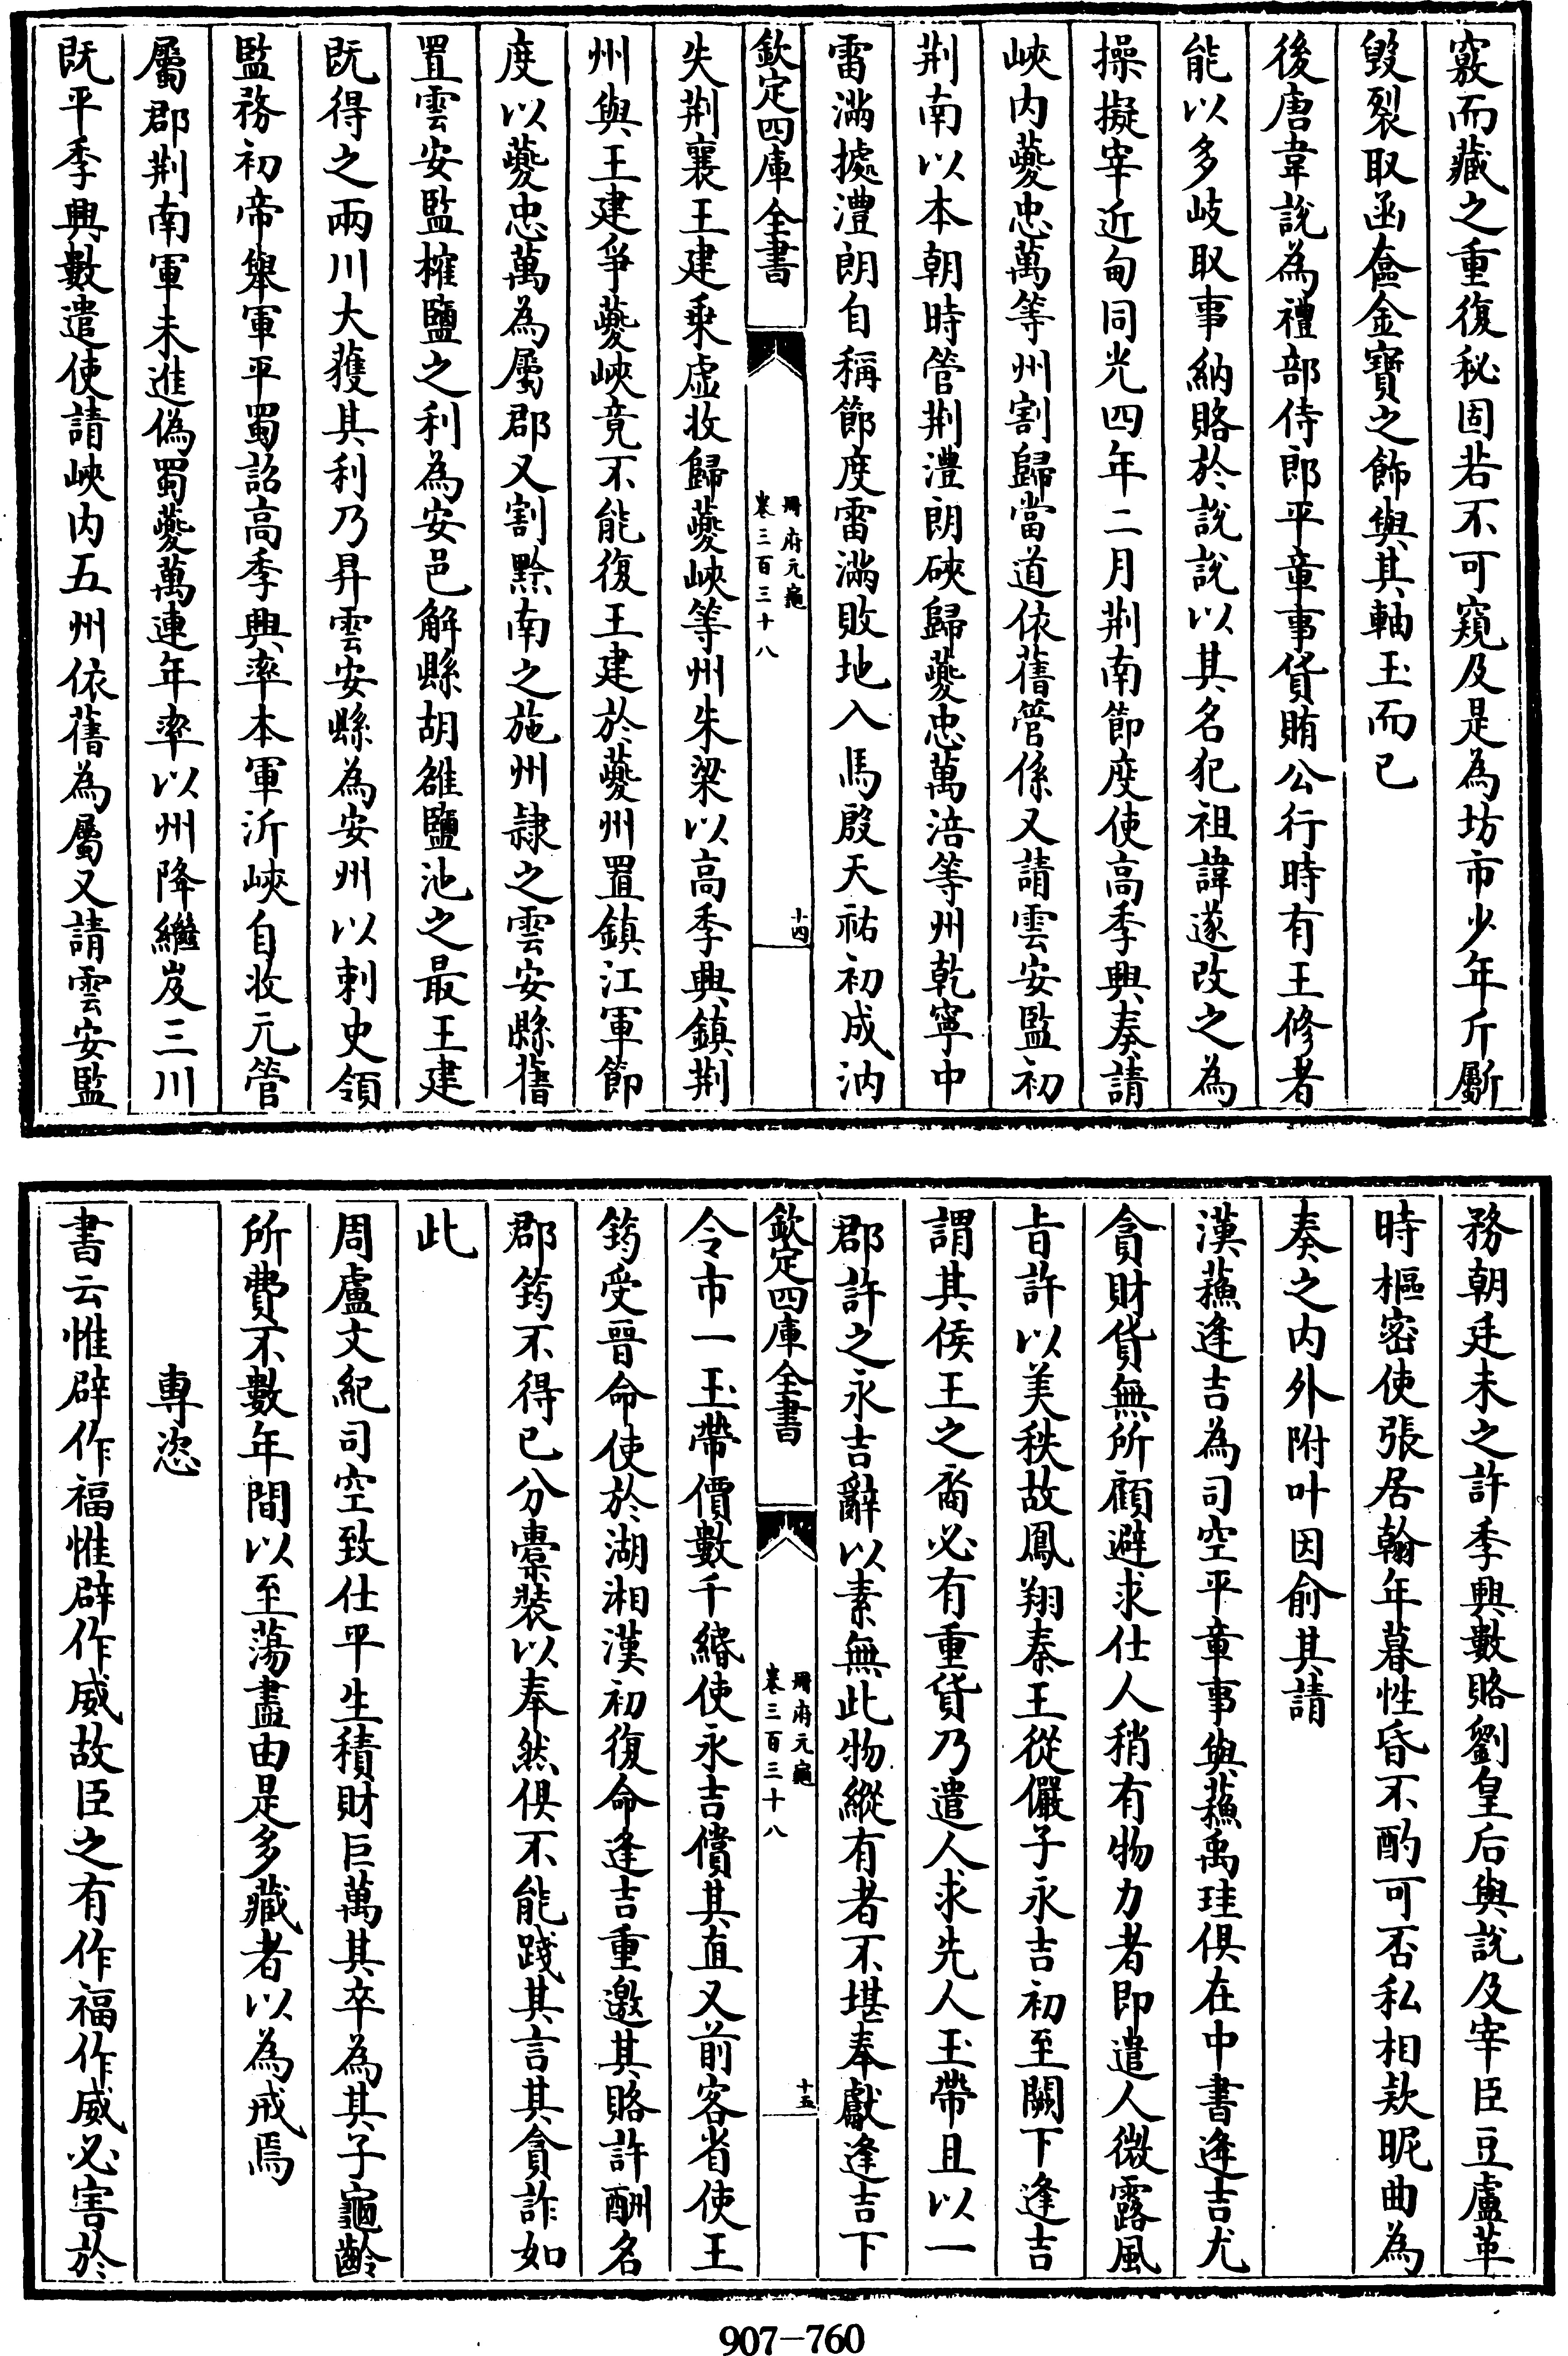 竅而藏之重復秘固若不可窺及是為坊市少年斤斸
毀裂取函奩金寶之飾與其軸玉而已
後唐韋說為禮部侍郎平章事貨賄公行時有王修者
能以多岐取事納賂於說說以其名犯祖諱遂改之為
操擬宰近甸同光四年二月荆南節度使高季興奏請
峽内夔忠萬等州割歸當道依舊管係又請雲安監初
荆南以本朝時管荆澧朗硤歸夔忠萬涪等州乾寧中
雷滿據澧朗自稱節度雷滿敗地入馬殷天祐初成汭
欽定四庫全書
冊府元龜
卷三百三十八
十四
失荆襄王建乗虚收歸夔峽等州朱梁以高季興鎮荆
州與王建爭夔峽竟不能復王建於夔州置鎮江軍節
度以夔忠萬為屬郡又割黔南之施州隷之雲安縣舊
置雲安監榷鹽之利為安邑解縣胡雒鹽池之最王建
既得之兩川大獲其利乃昇雲安縣為安州以刺史領
監務初帝舉軍平蜀詔高季興率本軍泝峽自收元管
屬郡荆南軍未進偽蜀夔萬連年率以州降繼岌三川
既平季興數遣使請峽内五州依舊為屬又請雲安監
務朝廷未之許季興數賂劉皇后與說及宰臣豆盧革
時樞密使張居翰年暮性昏不酌可否私相欵昵曲為
奏之内外附叶因俞其請
漢蘓逢吉為司空平章事與蘓禹珪俱在中書逢吉尤
貪財貨無所顧避求仕人稍有物力者即遣人微露風
㫖許以美秩故鳳翔秦王從儼子永吉初至闕下逢吉
謂其侯王之裔必有重貨乃遣人求先人玉帶且以一
郡許之永吉辭以素無此物縱有者不堪奉獻逢吉下
欽定四庫全書
冊府元龜
卷三百三十八
十五
令市一玉帶價數千緡使永吉償其直又前客省使王
筠受晉命使於湖湘漢初復命逢吉重邀其賂許酬名
郡筠不得已分橐裝以奉然俱不能踐其言其貪詐如
此
周盧文紀司空致仕平生積財巨萬其卒為其子龜齡
所費不數年間以至蕩盡由是多藏者以為戒焉
專恣
書云惟辟作福惟辟作威故臣之有作福作威必害於
907-760